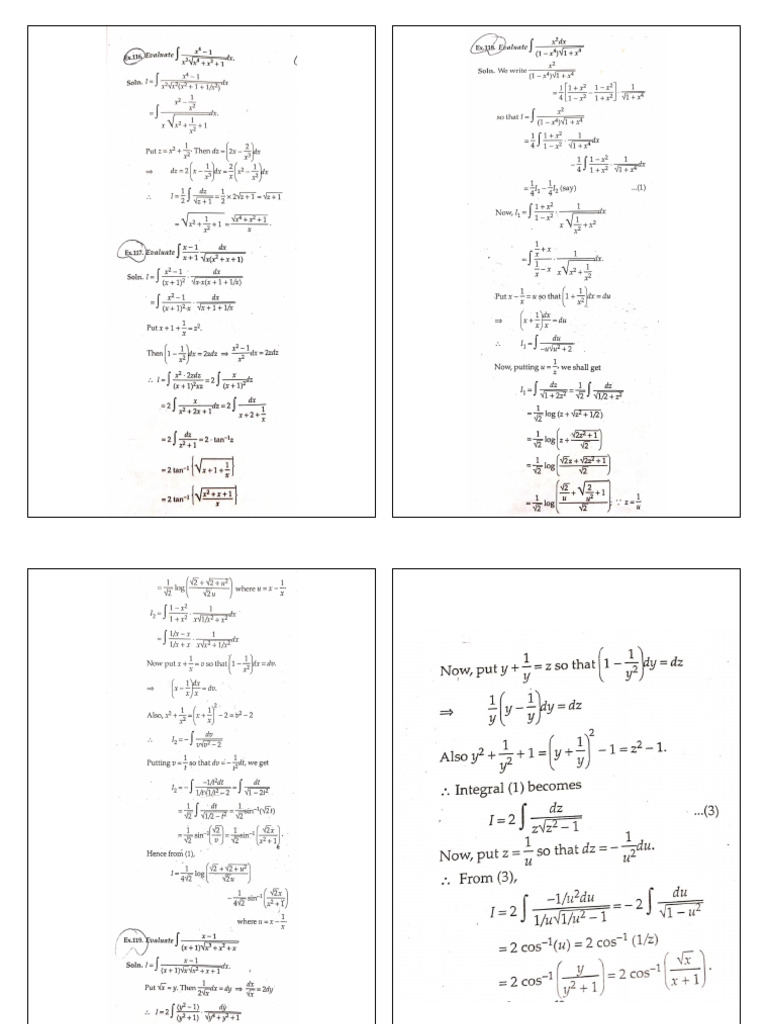 Ex.116. Evaluate ∫ (x⁴ − 1)/(x²√(x⁴ + x² + 1)) dx.
Soln. I = ∫ (x⁴ − 1)/(x²√(x²(x² + 1 + 1/x²))) dx
= ∫ (x² − 1/x²)/(x√(x² + 1/x² + 1)) dx.
Put z = x² + 1/x². Then dz = (2x − 2/x³)dx
⇒ dz = 2(x − 1/x³)dx = 2/x (x² − 1/x²)dx
∴ I = 1/2 ∫ dz/√(z + 1) = 1/2 × 2√(z + 1) = √(z + 1)
= √(x² + 1/x² + 1) = √(x⁴ + x² + 1)/x.
Ex.117. Evaluate ∫ (x − 1)/(x + 1) · dx/√(x(x² + x + 1))
Soln. I = ∫ (x² − 1)/(x + 1)² · dx/√(x·x(x + 1 + 1/x))
= ∫ (x² − 1)/((x + 1)²·x) · dx/√(x + 1 + 1/x)
Put x + 1 + 1/x = z².
Then (1 − 1/x²)dx = 2zdz ⇒ (x² − 1)/x² dx = 2zdz
∴ I = ∫ (x² · 2zdz)/((x + 1)²xz) = 2∫ x/(x + 1)² dz
= 2∫ x/(x² + 2x + 1) dz = 2∫ dx/(x + 2 + 1/x)
= 2∫ dz/(z² + 1) = 2 · tan⁻¹z
= 2 tan⁻¹{√(x + 1 + 1/x)}
= 2 tan⁻¹{√((x² + x + 1)/x)}
Ex.118. Evaluate ∫ x²dx/((1 − x⁴)√(1 + x⁴))
Soln. We write x²/((1 − x⁴)√(1 + x⁴))
= 1/4 [(1 + x²)/(1 − x²) − (1 − x²)/(1 + x²)] 1/√(1 + x⁴)
so that I = ∫ x²/((1 − x⁴)√(1 + x⁴))
= 1/4 ∫ (1 + x²)/(1 − x²) · 1/√(1 + x⁴) dx
− 1/4 ∫ (1 − x²)/(1 + x²) · 1/√(1 + x⁴) dx
= 1/4 I₁ − 1/4 I₂ (say) ...(1)
Now, I₁ = ∫ (1 + x²)/(1 − x²) · 1/(x√(1/x² + x²)) dx
= ∫ (1/x + x)/(1/x − x) · 1/(x√(x² + 1/x²)) dx.
Put x − 1/x = u so that (1 + 1/x²)dx = du
⇒ (x + 1/x)dx/x = du
∴ I₁ = ∫ du/(−u√(u² + 2))
Now, putting u = 1/z, we shall get
I₁ = ∫ dz/√(1 + 2z²) = 1/√2 ∫ dz/√(1/2 + z²)
= 1/√2 log (z + √(z² + 1/2))
= 1/√2 log(z + √(2z² + 1)/√2)
= 1/√2 log((√2z + √(2z² + 1))/√2)
= 1/√2 log((√2/u + √(2/u² + 1))/√2); ∵ z = 1/u
= 1/√2 log((√2 + √(2 + u²))/(√2u)) where u = x − 1/x
I₂ = ∫ (1 − x²)/(1 + x²) · 1/(x√(1/x² + x²)) dx
= ∫ (1/x − x)/(1/x + x) · 1/(x√(x² + 1/x²)) dx
Now put x + 1/x = v so that (1 − 1/x²)dx = dv.
⇒ (x − 1/x)dx/x = dv.
Also, x² + 1/x² = (x + 1/x)² − 2 = v² − 2
∴ I₂ = −∫ dv/(v√(v² − 2))
Putting v = 1/t so that dv = −1/t² dt, we get
I₂ = −∫ (−1/t²dt)/(1/t√(1/t² − 2)) = ∫ dt/√(1 − 2t²)
= 1/√2 ∫ dt/√(1/2 − t²) = 1/√2 sin⁻¹(√2t)
= 1/√2 sin⁻¹(√2/v) = 1/√2 sin⁻¹(√2x/(x² + 1)).
Hence from (1),
I = 1/(4√2) log((√2 + √(2 + u²))/(√2u))
− 1/(4√2) sin⁻¹(√2x/(x² + 1))
where u = x − 1/x
Ex.119. Evaluate ∫ (x − 1)/((x + 1)√(x³ + x² + x))
Soln. I = ∫ (x − 1)/((x + 1)√x√(x² + x + 1)) dx.
Put √x = y. Then 1/(2√x) dx = dy ⇒ dx/√x = 2dy
∴ I = 2∫ (y² − 1)/(y² + 1) · dy/√(y⁴ + y² + 1)
Now, put y + 1/y = z so that (1 − 1/y²)dy = dz
⇒ 1/y (y − 1/y)dy = dz
Also y² + 1/y² + 1 = (y + 1/y)² − 1 = z² − 1.
∴ Integral (1) becomes
I = 2∫ dz/(z√(z² − 1)) ...(3)
Now, put z = 1/u so that dz = −1/u² du.
∴ From (3),
I = 2∫ (−1/u²du)/(1/u√(1/u² − 1)) = −2∫ du/√(1 − u²)
= 2 cos⁻¹(u) = 2 cos⁻¹ (1/z)
= 2 cos⁻¹(y/(y² + 1)) = 2 cos⁻¹(√x/(x + 1)).